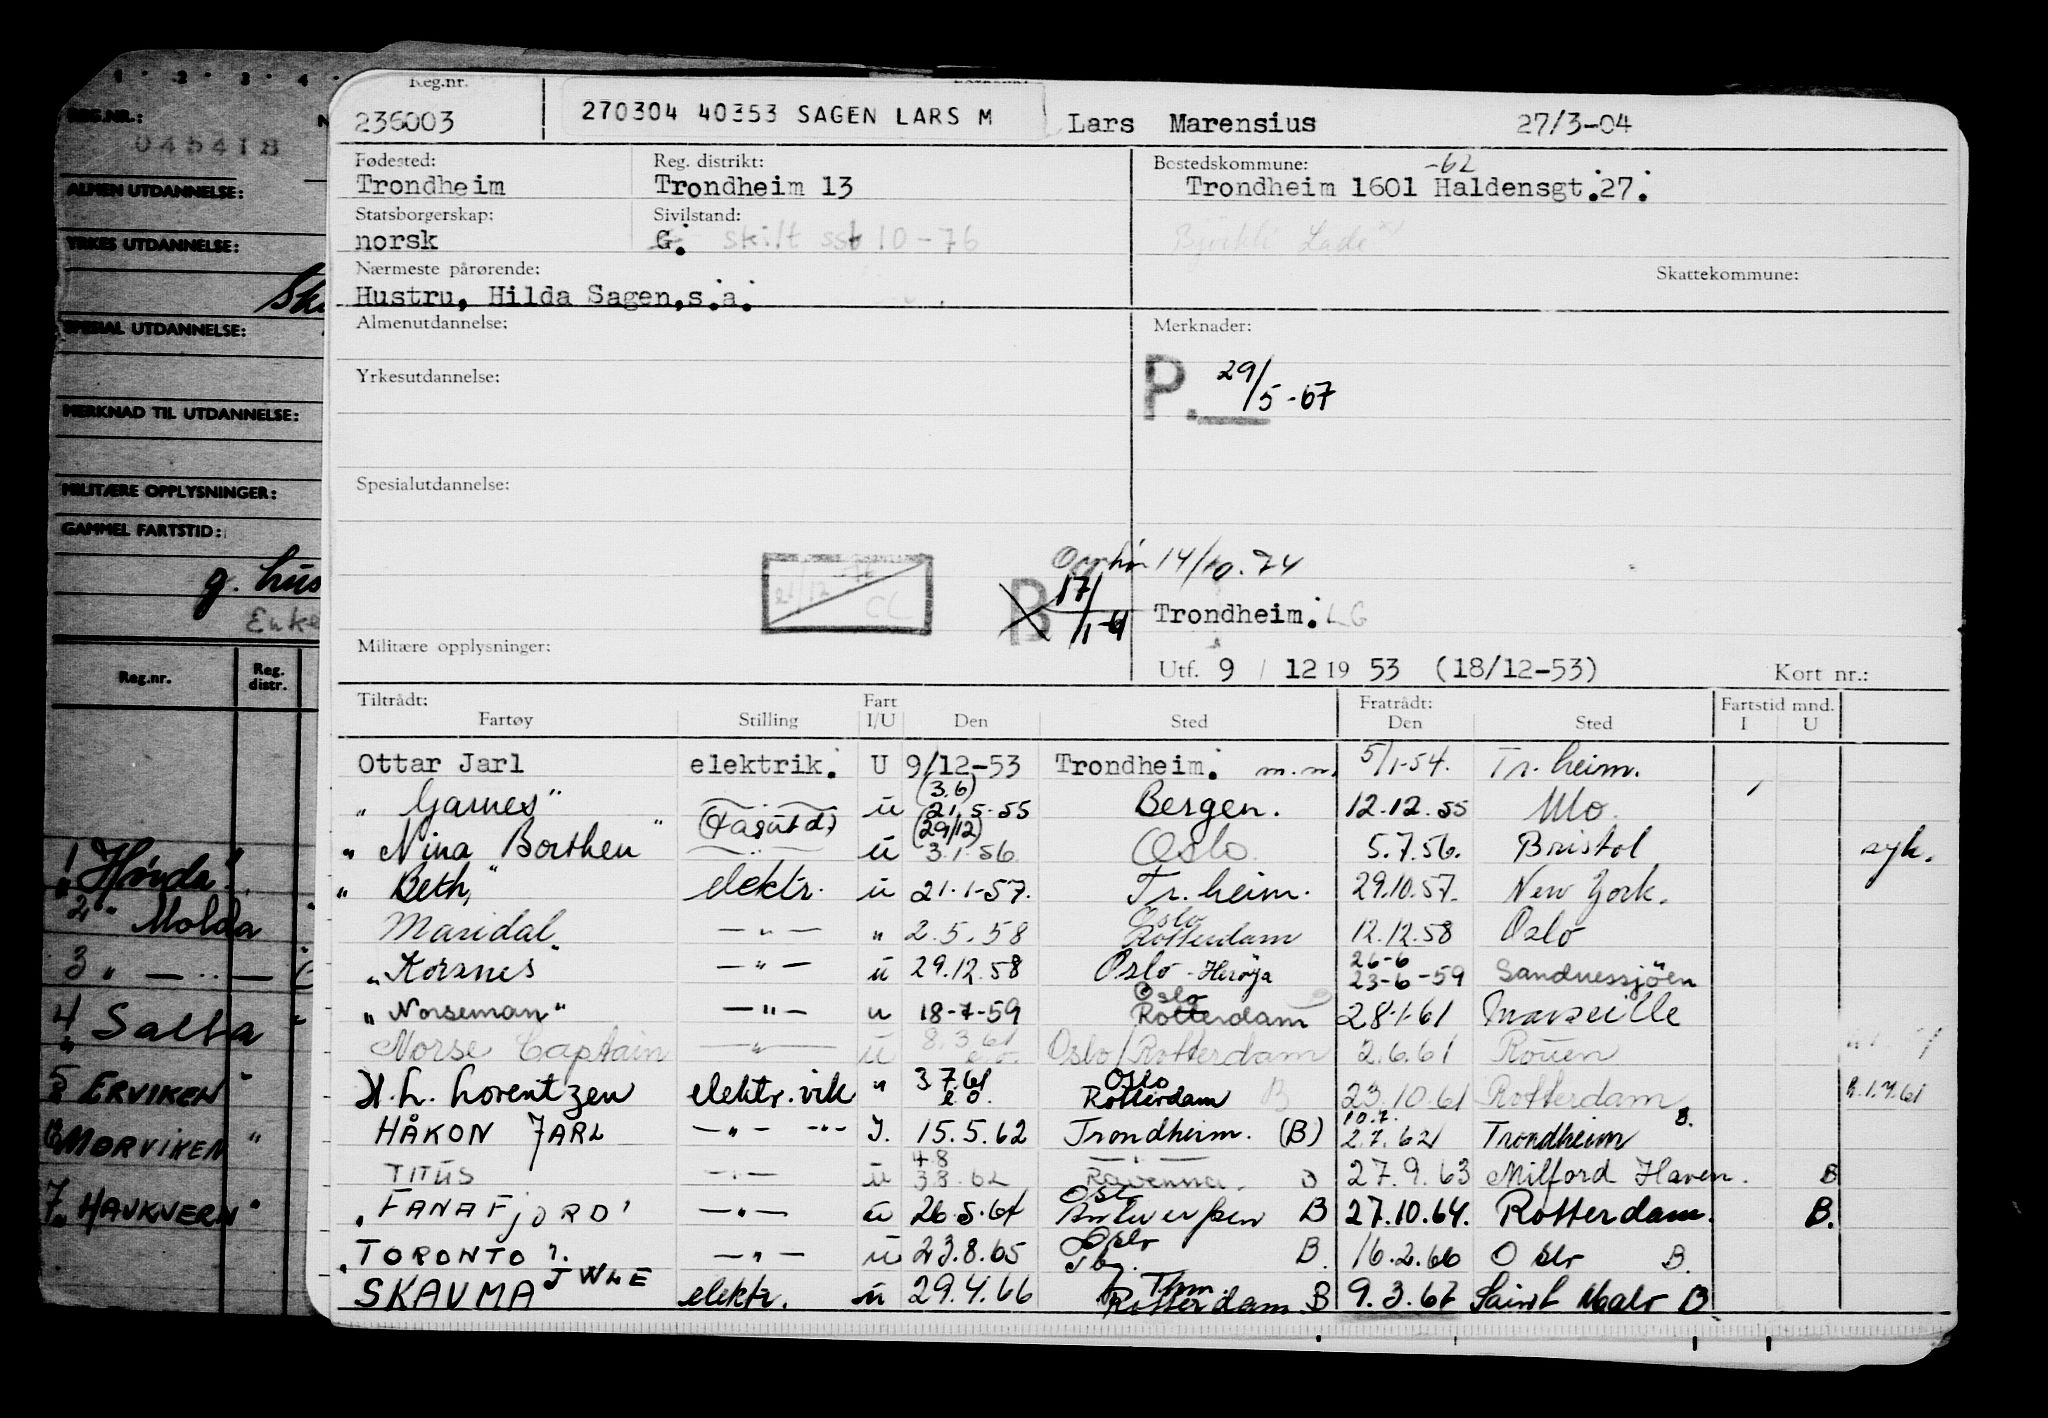 1 2 3 4
REG.NR.:
045418
ALMEN UTDANNELSE:
YRKES UTDANNELSE:
SPESIAL UTDANNELSE:
MERKNAD TIL UTDANNELSE:
MILITÆRE OPPLYSNINGER:
GAMMEL FARTSTID:
g. hus
Enke
Reg.nr. Reg. distr.
1 "Hørda"
2 " Molda
3 " — " —
4 " Salta "
5 " ERVIKEN "
6 " MORVIKEN "
7 " HAUKVERN "
Reg.nr.
236003 270304 40353 SAGEN LARS M Lars Marensius 27/3-04
Fødested: Reg. distrikt: Bostedskommune: -62
Trondheim Trondheim 13 Trondheim 1601 Haldensgt. 27.
Statsborgerskap: Sivilstand:
norsk G. skilt ssb 10-76 Lade
Nærmeste pårørende: Skattekommune:
Hustru, Hilda Sagen, s.a.
Almenutdannelse: Merknader:
P. 29/5-67
Yrkesutdannelse:
Spesialutdannelse:
Opphør 14/10.74
CL
B 17/1-61 Trondheim. LG
Militære opplysninger:
Utf. 9 / 12 19 53 (18/12-53) Kort nr.:
Tiltrådt: Fart Fratrådt: Fartstid mnd.
Fartøy Stilling I/U Den Sted Den Sted I U
Ottar Jarl elektrik. U 9/12-53 Trondheim. m.m. 5/1-54. Tr.heim.
" Garnes " u (3.6) 21.5-55 Bergen. 12.12.55 Mo.
" Nina Borthen " (fagutd) u (29/12) 3.1.56 Oslo 5.7.56. Bristol syk.
" Beth " elektr. u 21.1-57. Tr.heim. 29.10.57. New York.
Maridal " — " — " 2.5.58 Oslo Rotterdam 12.12.58 Oslo
" Korsnes " — " — u 29.12.58 Oslo - Herøya 26-6 23-6-59 Sandnessjöen
" Norseman " — " — u 18-7-59 Oslo Rotterdam 28-1-61 Marseille
Norse Captain — " — u 8.3.61 e.o. Oslo/Rotterdam 2.6.61 Rouen
H.h. Lorentzen elektr.vik " 3.7.61 e.o. Oslo Rotterdam B 23.10.61 Rotterdam B.1.7.61
HÅKON JARL — " — " — I. 15.5.62 Trondheim. (B) 10.7. 2.7.62 Trondheim B.
TITUS — " — u 4.8 3.8.62 Ravenna. B 27.9.63 Milford Haven. B
" FANAFJORD " — " — u 26.5.64 Oslo Antwerpen B 27.10.64. Rotterdam. B.
" TORONTO " — " — u 23.8.65 Oslo B. 16.2.66 Oslo B.
SKAUMA JWLE elektr. u 29.4.66 Thm. Rotterdam B 9.3.67 Saint Malo B